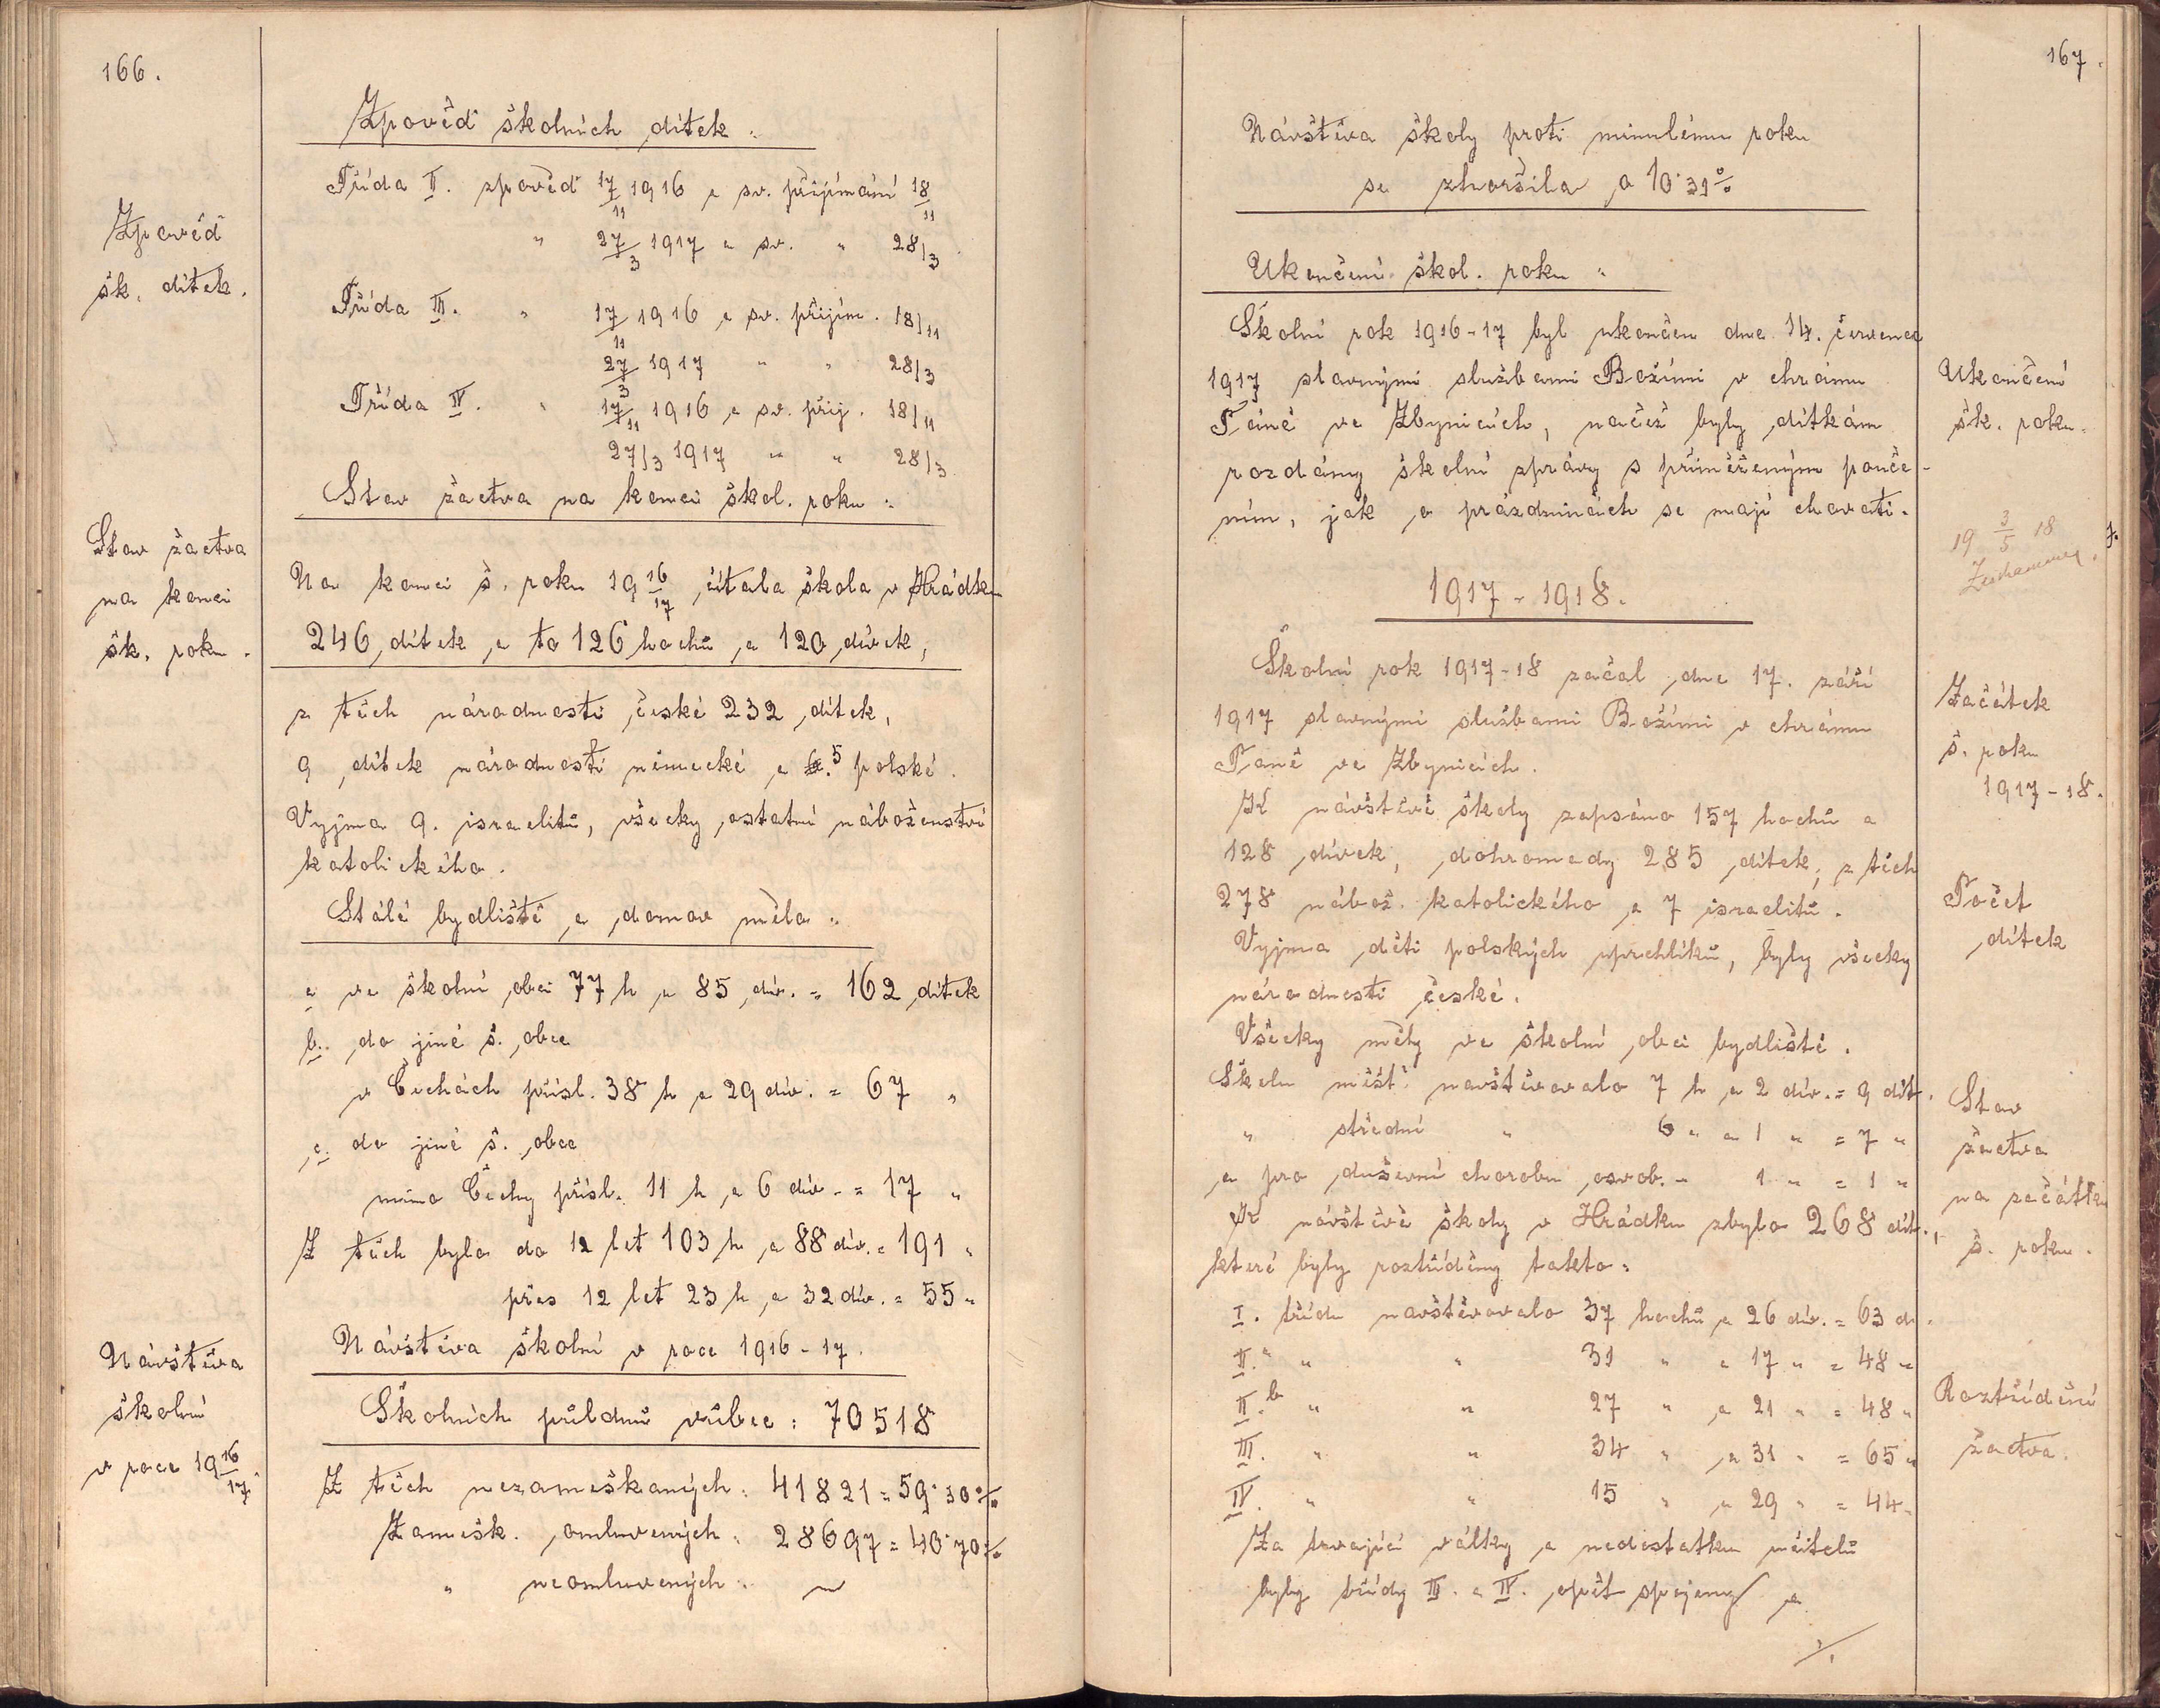 166.
Zpověď školních dítek:
Třída II. zpověď 17/11 1916 a sv. přijímání 18/11
" 27/3 1917 a sv. " 28/3
Zpověď
šk. dítek.
Třída III. " 17/11 1916 a sv. přijím. 18/11
27/3 1917 " " 28/3
Třída IV. " 17/11 1916 a sv. přij. 18/11
27/3 1917 " " 28/3
Stav žactva na konci škol. roku:
Stav žactva
na konci
šk. roku.
Na konci š. roku 19 16/17 čítala škola v Hrádku
246 dítek a to 126 hochů a 120 dívek,
z těch národnosti české 232 dítek,
9 dítek národnosti německé a 5 polské.
Vyjma 9. israelitů, všecky ostatní náboženství
katolického.
Stálé bydliště a domov mělo:
a ve školní obci 77 h a 85 dív. = 162 dítek
b. do jiné š. obce
v Čechách přísl. 38 h a 29 dív. = 67 "
c. do jiné š. obce
mimo Čechy přísl. 11 h a 6 dív. = 17 "
Z těch bylo do 12 let 103 h a 88 dív. = 191 "
přes 12 let 23 h a 32 dív. = 55 "
Návštěva školní v roce 1916-17.
Návštěva
školní
v roce 19 16/17.
Školních půldnů vůbec: 70518
Z těch nezameškaných: 41821 = 59·30%
Zamešk. omluvených: 28697 = 40·70%
" neomluvených: ~
167.
Návštěva školy proti minulému roku
se zhoršila o 10·31%
Ukončení škol. roku:
Školní rok 1916-17 byl ukončen dne 14. července
1917 slavnými službami Božími v chrámu
Páně ve Zbynicích, načež byly dítkám
rozdány školní zprávy s přiměřeným pouče-
ním, jak o prázdninách se mají chovati.
Ukončení
šk. roku.
19 3/5 18
1917-1918.
Školní rok 1917-18 začal dne 17. září
1917 slavnými službami Božími v chrámu
Páně ve Zbynicích.
Začátek
š. roku
1917-18.
K návštěvě školy zapsáno 157 hochů a
128 dívek, dohromady 285 dítek, z těch
278 nábož. katolického a 7 israelitů.
Vyjma děti polských uprchlíků, byly všecky
národnosti české.
Počet
dítek
Všecky měly ve školní obci bydliště.
Školu měšť. navštěvovalo 7 h a 2 dív. = 9 dít.
" střední " 6 " a 1 " = 7 "
a pro duševní chorobu osvob. - 1 " = 1 "
K návštěvě školy v Hrádku zbylo 268 dít.,
které byly roztříděny takto:
Stav
žactva
na začátku
š. roku.
I. třídu navštěvovalo 37 hochů a 26 dív. = 63 d.
II.a " " 31 " a 17 " = 48 "
II.b " " 27 " a 21 " = 48 "
III. " " 34 " a 31 " = 65 "
IV. " " 15 " a 29 " = 44 "
Roztřídění
žactva.
Za trvající války a nedostatku učitelů
byly třídy III. a IV. opět spojeny a
./.